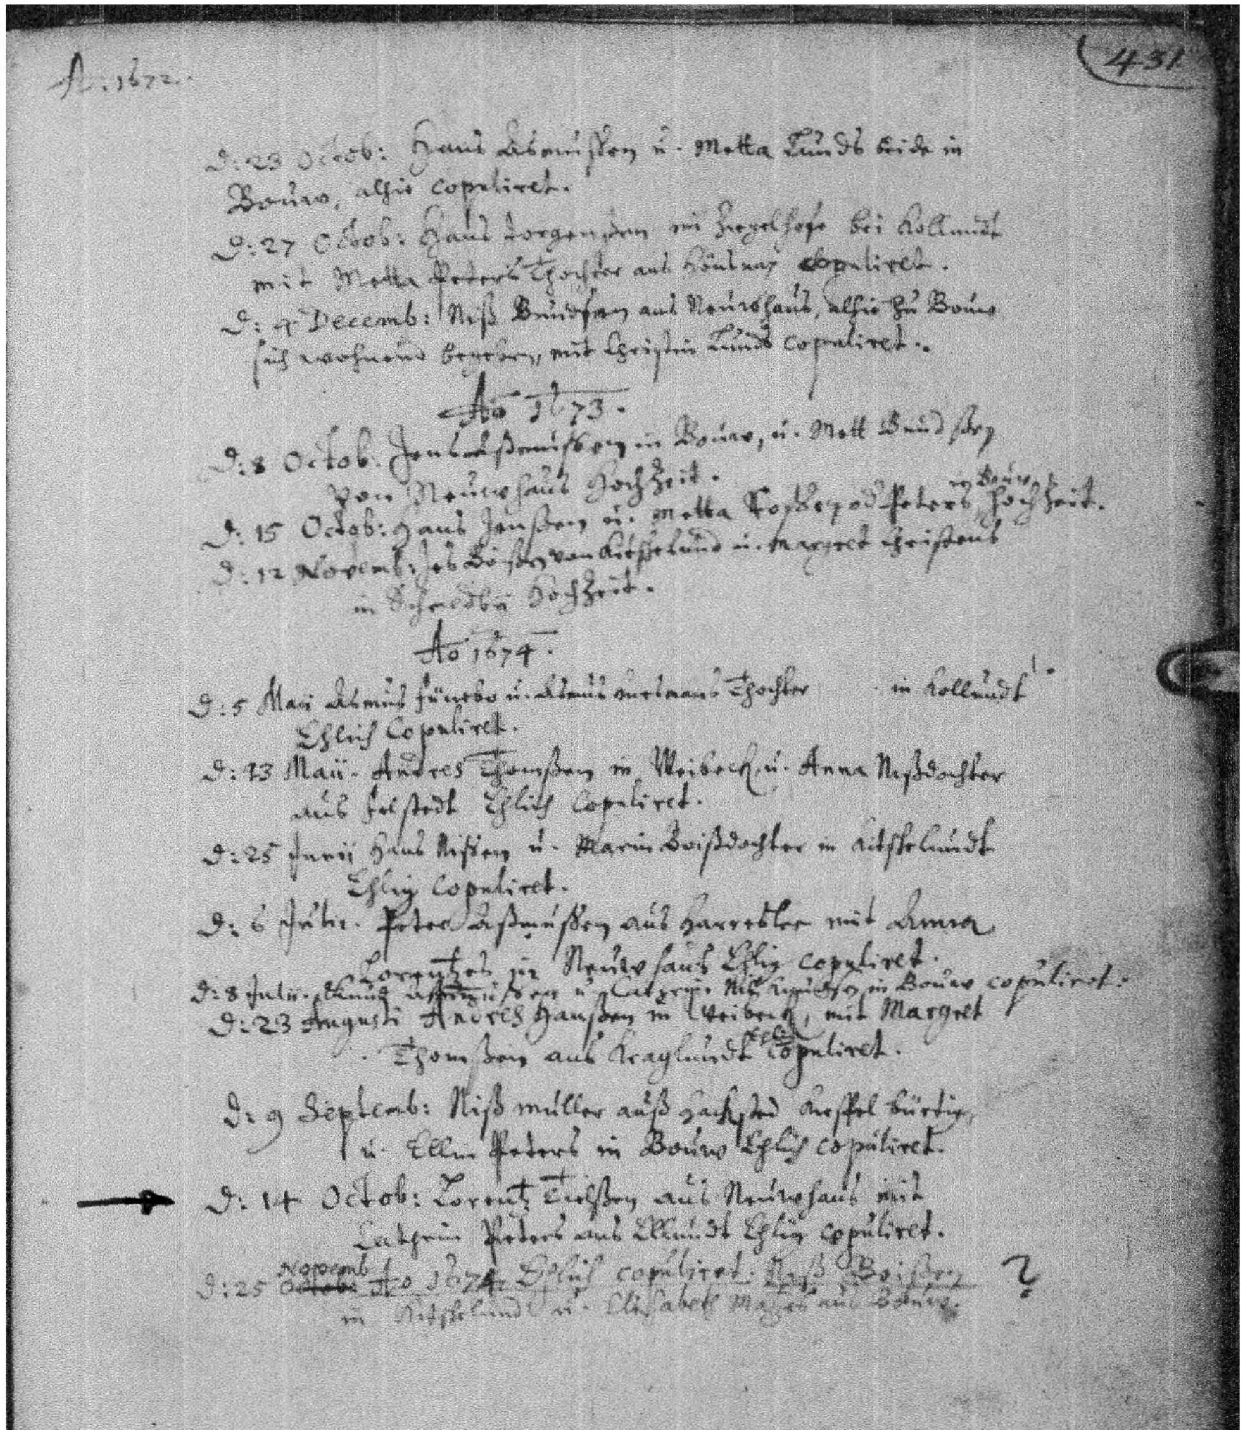 A: 1672.
431
D: 23 Octob: Hans Asmussen u. Metta Lunds beide in
Bouw, alhie copuliret.
D: 27 Octob: Hans Jorgenßen im Ziegelhofe bei Kollundt
mit Metta Peters Thochter aus copuliret.
D: 4 Decemb: Niß aus Neuwhaus, alhie zu Bouw
sich wohnend begeben, mit Christin Lunds copuliret.
Ao 1673.
D: 8 Octob: Jens Aßmussen in Bouw, u. Mett
von Neuwhaus Hochzeit.
in Bouw
D: 15 Octob: Hans Jenßen u. Metta Peters Hochzeit.
D: 12 Novemb: Jeb Boißen von Kitschelund u. Margret Christens
in Hochzeit.
Ao 1674.
D: 5 Maii Asmus u. Asmus Thochter in Kollundt
Ehlich Copuliret.
D: 13 Maii. Andres Thomßen in Weibeck u. Anna Nißdochter
aus Felstedt Ehlich Copuliret.
D: 25 Junii Hans Nissen u. Marin Boißdochter in Kitschelundt
Ehlig copuliret.
D: 6 Julii. Peter Aßmussen aus Harreslee mit Anna
Lorentzes in Neuwhaus Ehlig copuliret.
D: 8 Julii. Knud Aßmussen u. Cathrin Niß in Bouw copuliret.
D: 23 Augusti Andres Hanßen in Weibeck, mit Margret
Ehlig
Thomßen aus Kraglundt copuliret.
D: 9 Septemb: Niß müller auß Hacksted Kespel bürtig,
u. Ellin Peters in Bouw Ehlich copuliret.
D: 14 Octob: Lorentz Tielßen aus Neuwhaus mit
Cathrin Peters aus Ellundt Ehlig copuliret.
Novemb
D: 25 Octob: Ao 1674 Ehlich copuliret: Niß Boißen ?
in Kitschelundt u. Elisabeth aus Bouw.